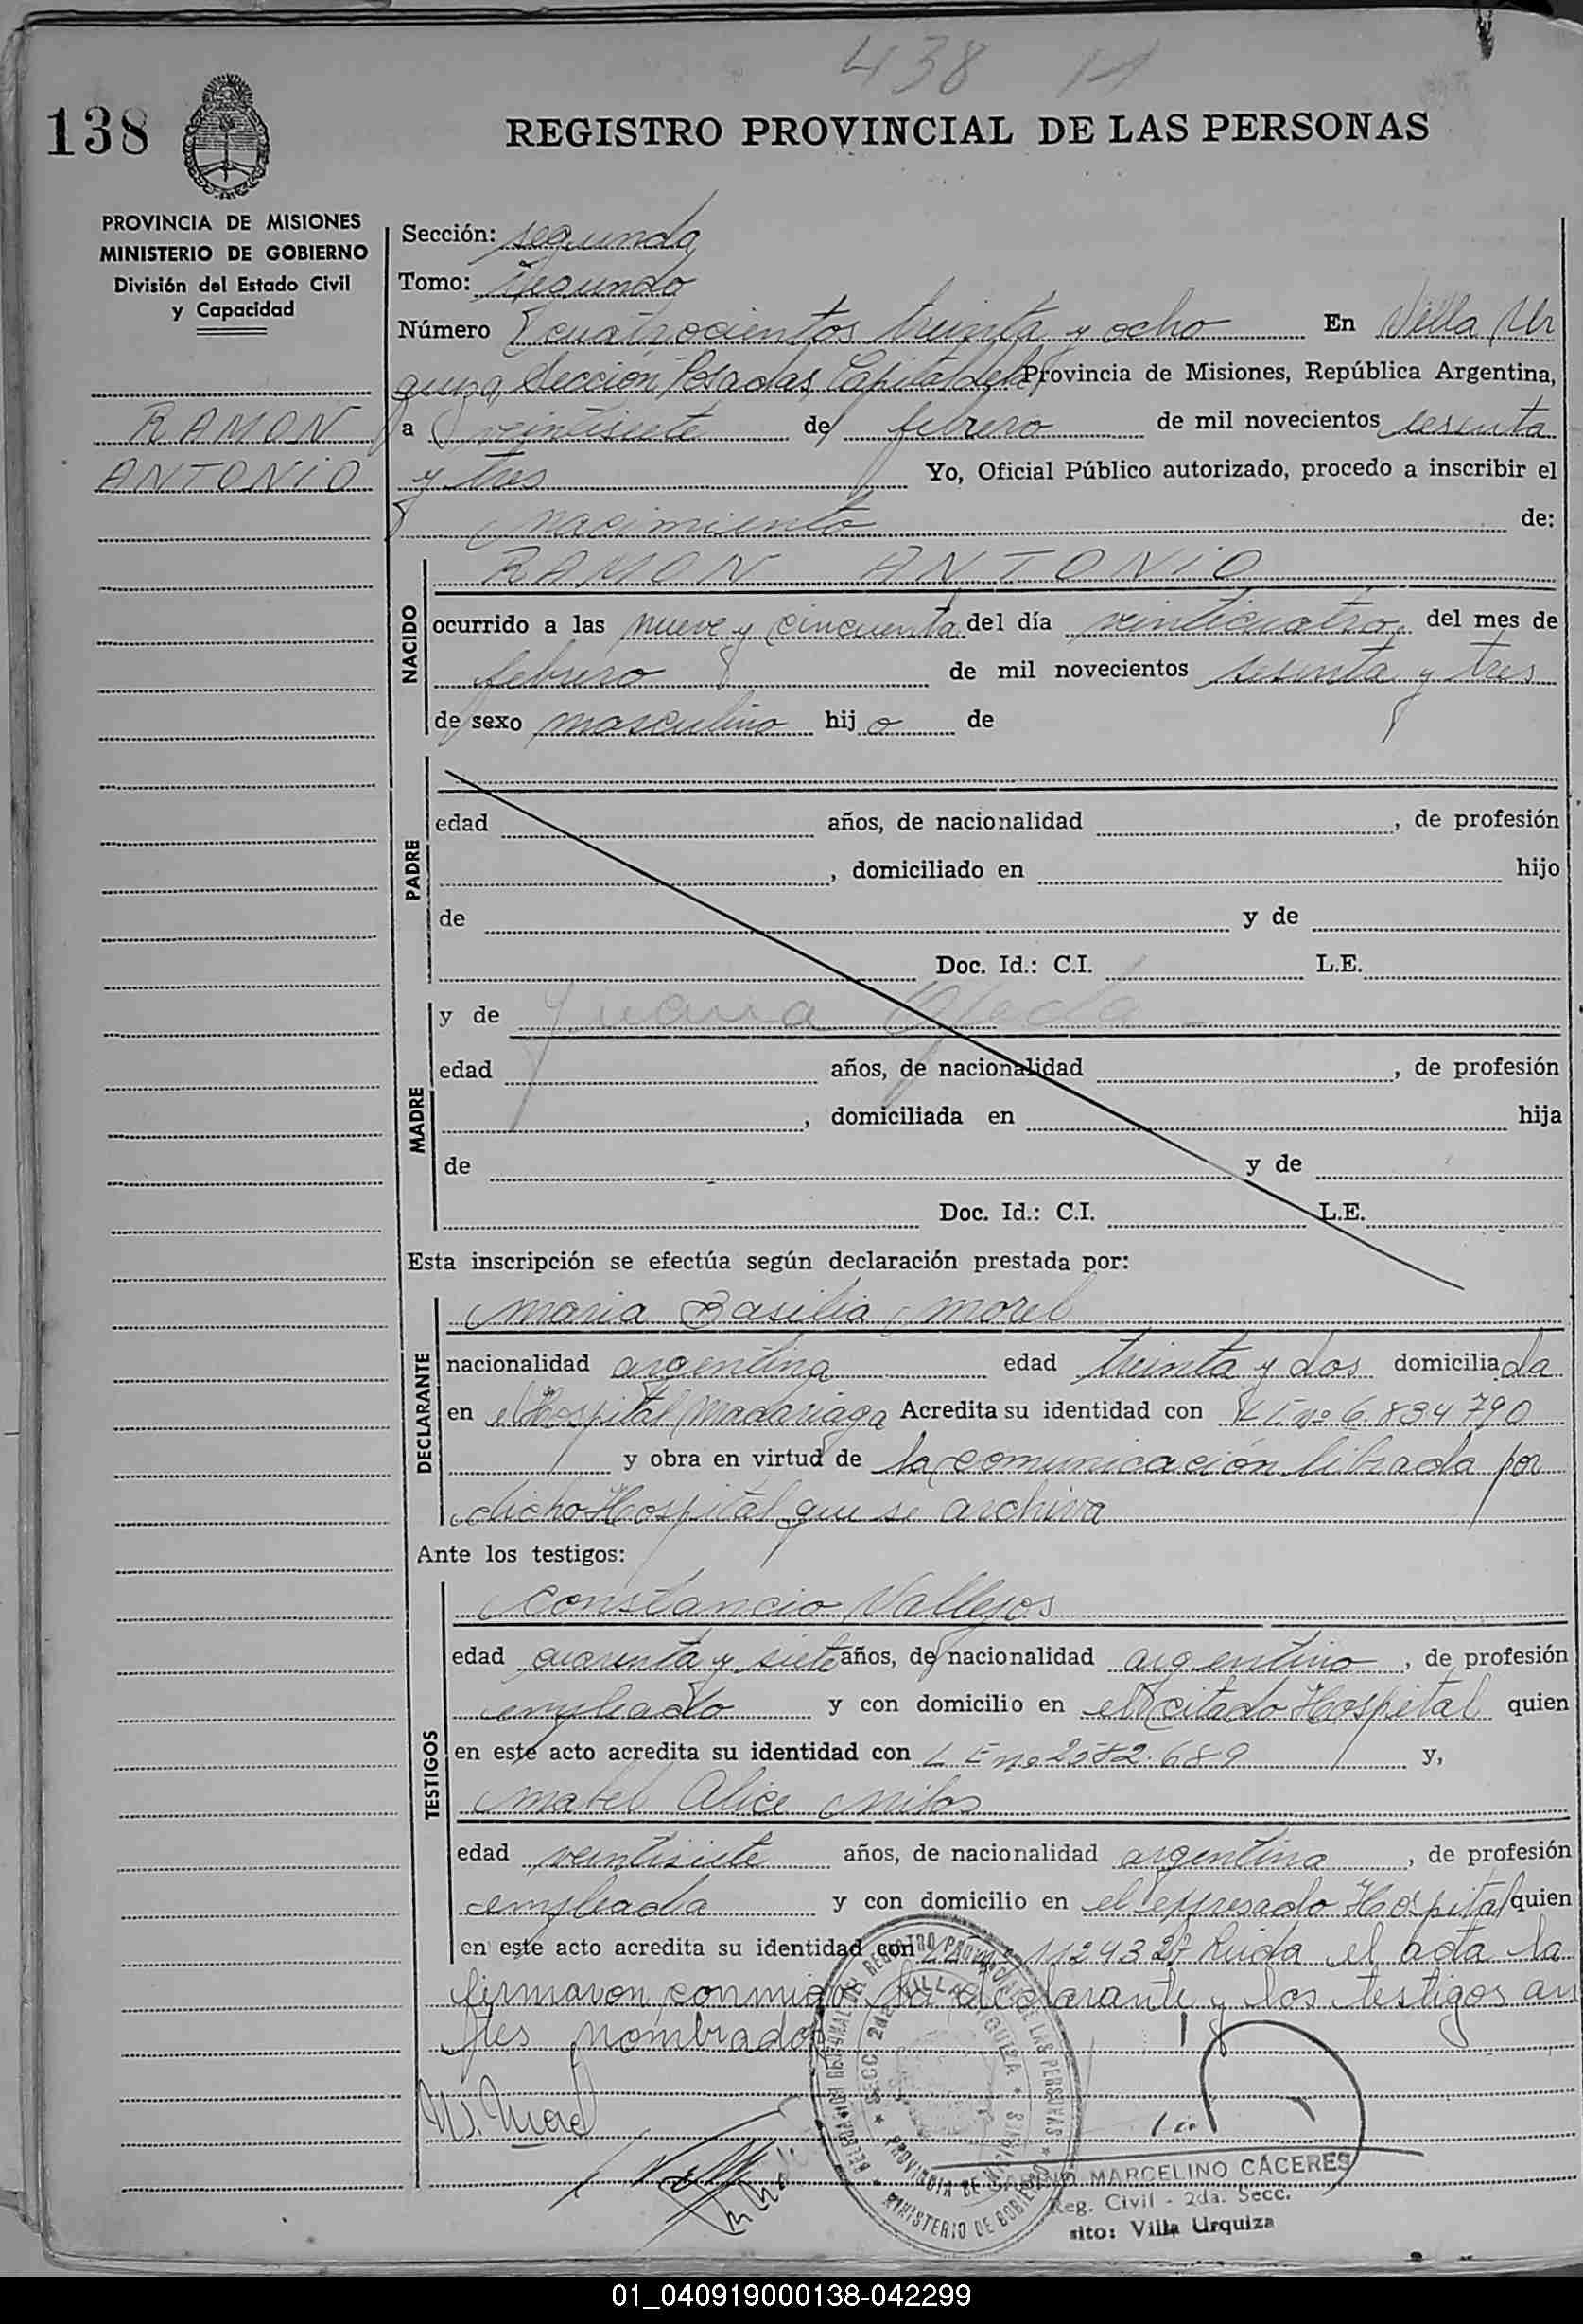 438
138
REGISTRO PROVINCIAL DE LAS PERSONAS
PROVINCIA DE MISIONES
MINISTERIO DE GOBIERNO
División del Estado Civil
y Capacidad
RAMON
ANTONIO
Sección: segunda
Tomo: Segundo
Número cuatrocientos treinta y ocho En Villa Ur
quiza, Sección Posadas, Capital de la Provincia de Misiones, República Argentina,
a veintisiete de febrero de mil novecientos sesenta
y tres Yo, Oficial Público autorizado, procedo a inscribir el
nacimiento de:
NACIDO
RAMON ANTONIO
ocurrido a las nueve y cincuenta del día veinticuatro del mes de
febrero de mil novecientos sesenta y tres
de sexo masculino hijo de
PADRE
edad años, de nacionalidad , de profesión
, domiciliado en hijo
de y de
Doc. Id.: C.I. L.E.
MADRE
y de Juana Ojeda
edad años, de nacionalidad , de profesión
, domiciliada en hija
de y de
Doc. Id.: C.I. L.E.
Esta inscripción se efectúa según declaración prestada por:
DECLARANTE
Maria Basilia Morel
nacionalidad argentina edad treinta y dos domiciliada
en el Hospital Madariaga Acredita su identidad con nº 6.834790
y obra en virtud de la comunicación librada por
dicho Hospital que se archiva
Ante los testigos:
TESTIGOS
Constancio Vallejos
edad cuarenta y siete años, de nacionalidad argentino, de profesión
empleado y con domicilio en el citado Hospital quien
en este acto acredita su identidad con L E nº 2582.689 y,
Mabel Alice
edad veintisiete años, de nacionalidad argentina, de profesión
empleada y con domicilio en el expresado Hospital quien
en este acto acredita su identidad con Leida el acta la
firmaron conmigo, la declarante y los testigos an
tes nombrados
M. Morel
DELEGACION REGISTRO PROVINCIAL DE LAS PERSONAS
SECC. 2da. VILLA URQUIZA
PROVINCIA DE MISIONES
MINISTERIO DE GOBIERNO
MARCELINO CÁCERES
Reg. Civil - 2da. Secc.
sito: Villa Urquiza
01_040919000138-042299